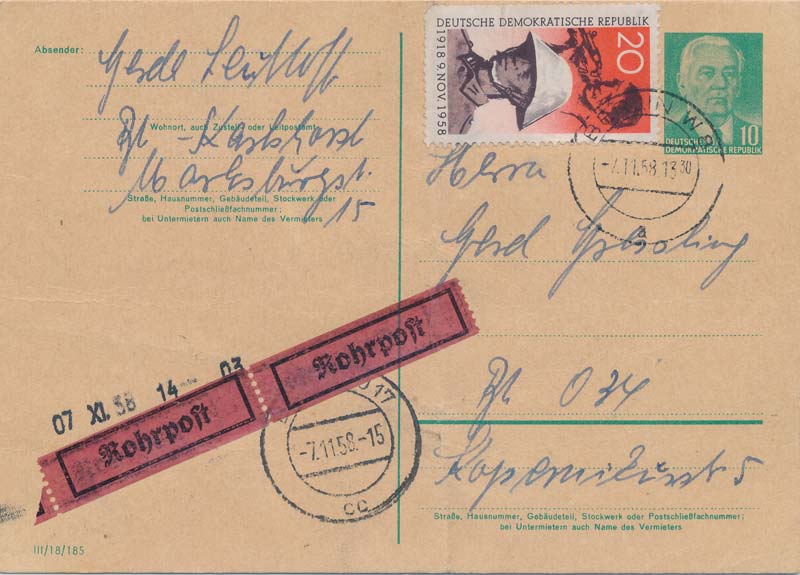 Absender:
Gerda
Wohnort, auch Zustell- oder Leitpostamt
Bln - Karlshorst
Marksburgstr.
15
Straße, Hausnummer, Gebäudeteil, Stockwerk oder
Postschließfachnummer;
bei Untermietern auch Name des Vermieters
DEUTSCHE DEMOKRATISCHE REPUBLIK
1918 9. NOV. 1958
20
10
DEUTSCHE
DEMOKRATISCHE REPUBLIK
BERLIN W 8
-7.11.58.13 30
a
Herrn
Gerd
Bln O 34
Kopernikusstr 5
Straße, Hausnummer, Gebäudeteil, Stockwerk oder Postschließfachnummer;
bei Untermietern auch Name des Vermieters
07 XI. 58 14 03
Rohrpost
Rohrpost
O 17
-7.11.58.-15
cc
III/18/185